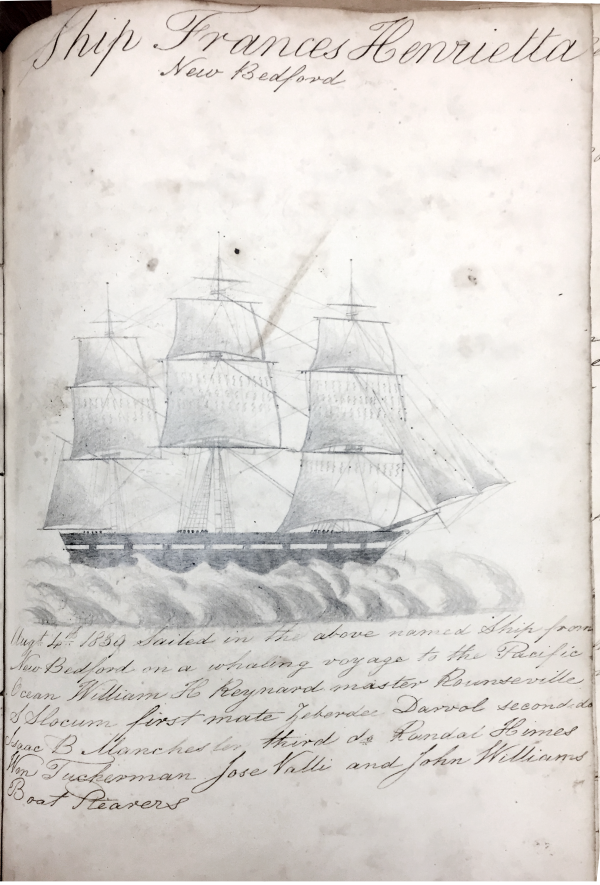 Ship Frances Henrietta
New Bedford
Augt 4th 1839 Sailed in the above named Ship from
New Bedford on a whaling voyage to the Pacific
Ocean William H Reynard master Rounseville
S Slocum first mate Darvol second do
Isaac B Manchester third do Randal Himes
Wm Tuckerman Jose Valli and John Williams
Boat Stearers